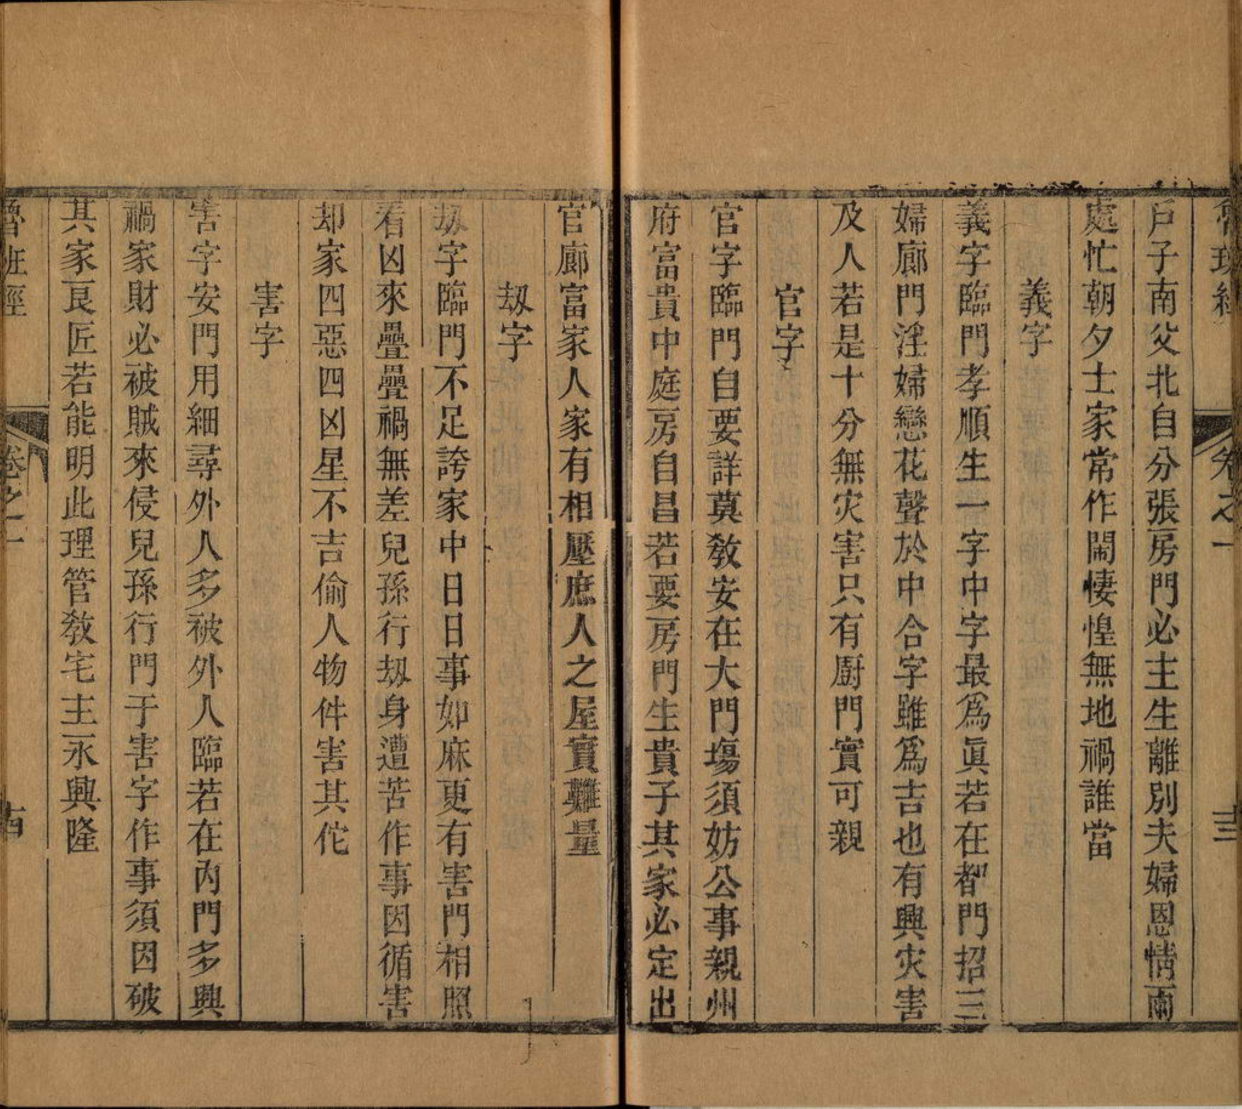 魯班經 卷之一 十三
戶子南父北自分張房門必主生離別夫婦恩情兩
處忙朝夕士家常作鬧悽惶無地禍誰當
義字
義字臨門孝順生一字中字最爲眞若在都門招三
婦廊門淫婦戀花聲於中合字雖爲吉也有興灾害
及人若是十分無灾害只有厨門實可親
官字
官字臨門自要詳莫敎安在大門塲須妨公事親州
府富貴中庭房自昌若要房門生貴子其家必定出
官廊富家人家有相壓庶人之屋實難量
刼字
刼字臨門不足誇家中日日事如麻更有害門相照
看凶來疊疊禍無差兒孫行刼身遭苦作事因循害
却家四惡四凶星不吉偷人物件害其佗
害字
害字安門用細尋外人多被外人臨若在內門多興
禍家財必被賊來侵兒孫行門于害字作事須因破
其家良匠若能明此理管敎宅主永興隆
魯班經 卷之一 十四